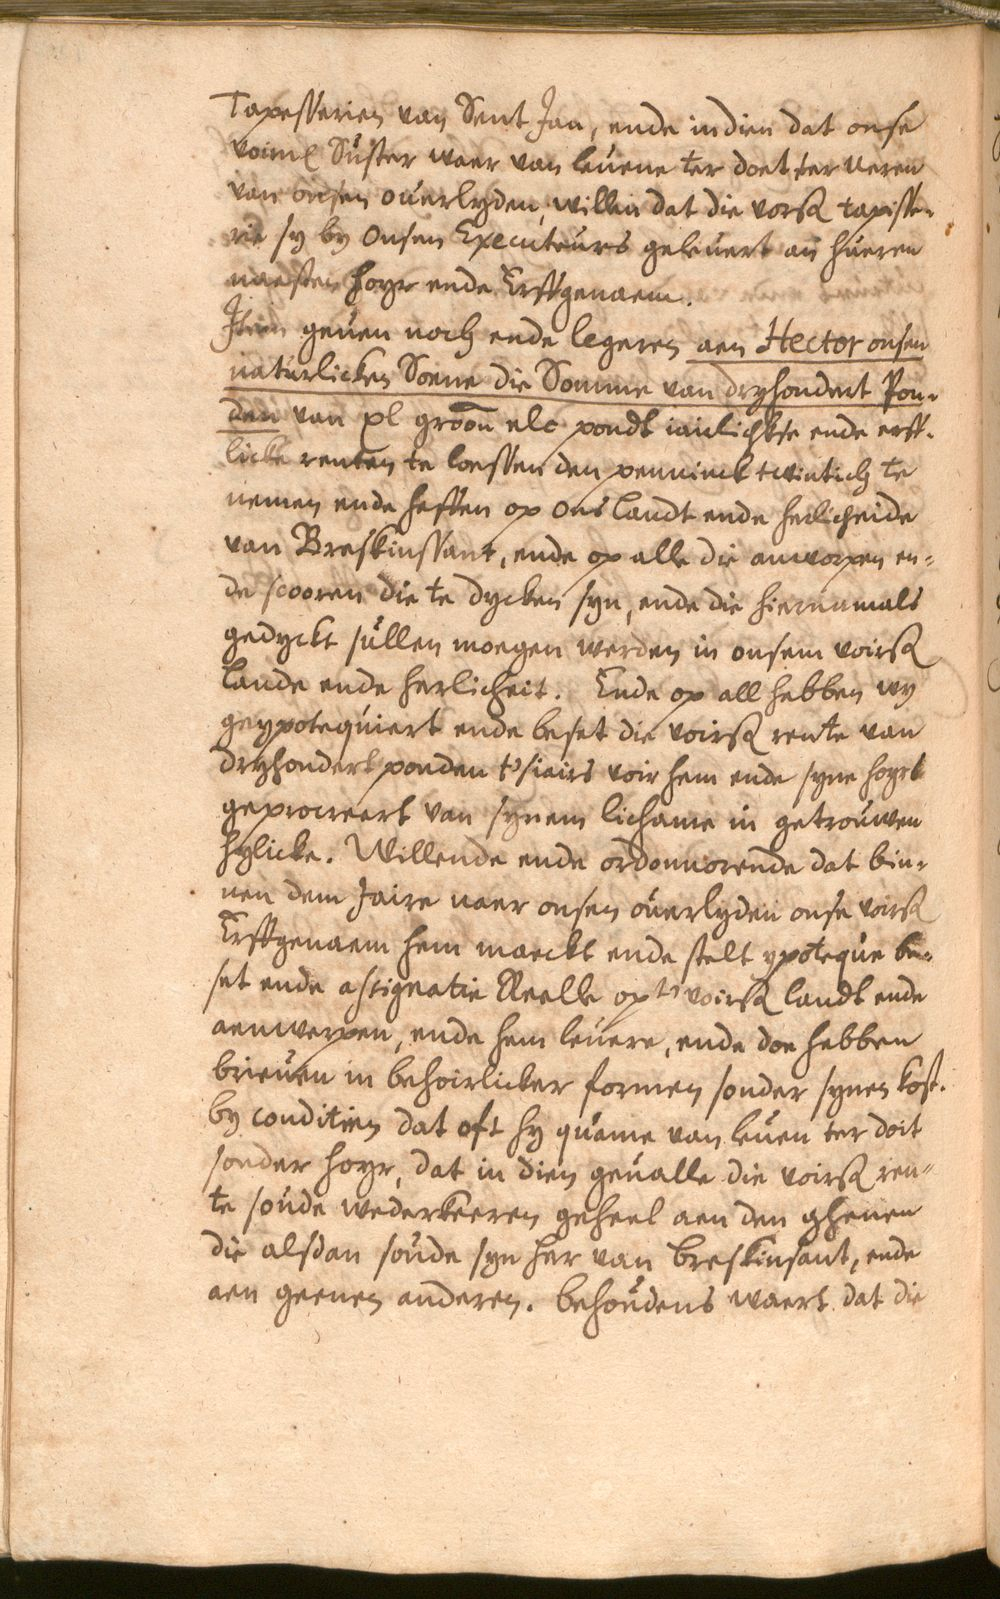 Tapesserien van Sent Jan, ende indien dat onse
voirn Suster waer van leuene ter doet ter ueren
van onsen ouerlyden, willen dat die vors tapisse-
rie sy by Onsen Executeurs geleuert an hueren
naesten hoyr ende Erffgenaem.
Item geuen noch ende legeren aen Hector onsen
naturlicken Soene die Somme van dryhondert Pon-
den van xl groon elc pondt iairlichste ende erff-
licke renten te loessen den penninck twintich te
nemen ende heffen op Ons landt ende herlicheide
van Breskinssant, ende op alle die anworpen en-
de scooren die te dycken syn, ende die hiernamals
gedyckt sullen moegen werden in onsem voirs
Lande ende herlicheit. Ende op all hebben wy
geypotequiert ende beset die voirs rente van
dryhondert ponden tsiairs voir hem ende syne hoyrs
geprocreert van synem lichame in getrouwen
hylicke. Willende ende ordonnorende dat bin-
nen dem Jaire naer onsen ouerlyden onse voirs
Erffgenaem hem maeckt ende stelt ypoteque be-
set ende assignatie Reelle opt voirs landt ende
aenwerpen, ende hem leuere, ende doe hebben
brieuen in behoirlicker formen sonder synen kost.
by conditien dat oft hy quame van leuen ter doit
sonder hoyr, dat in dien geualle die voirs ren-
te soude wederkeeren geheel aen den ghenen
die alsdan soude syn her van breskinsant, ende
aen geenen anderen. behoudens waert dat die